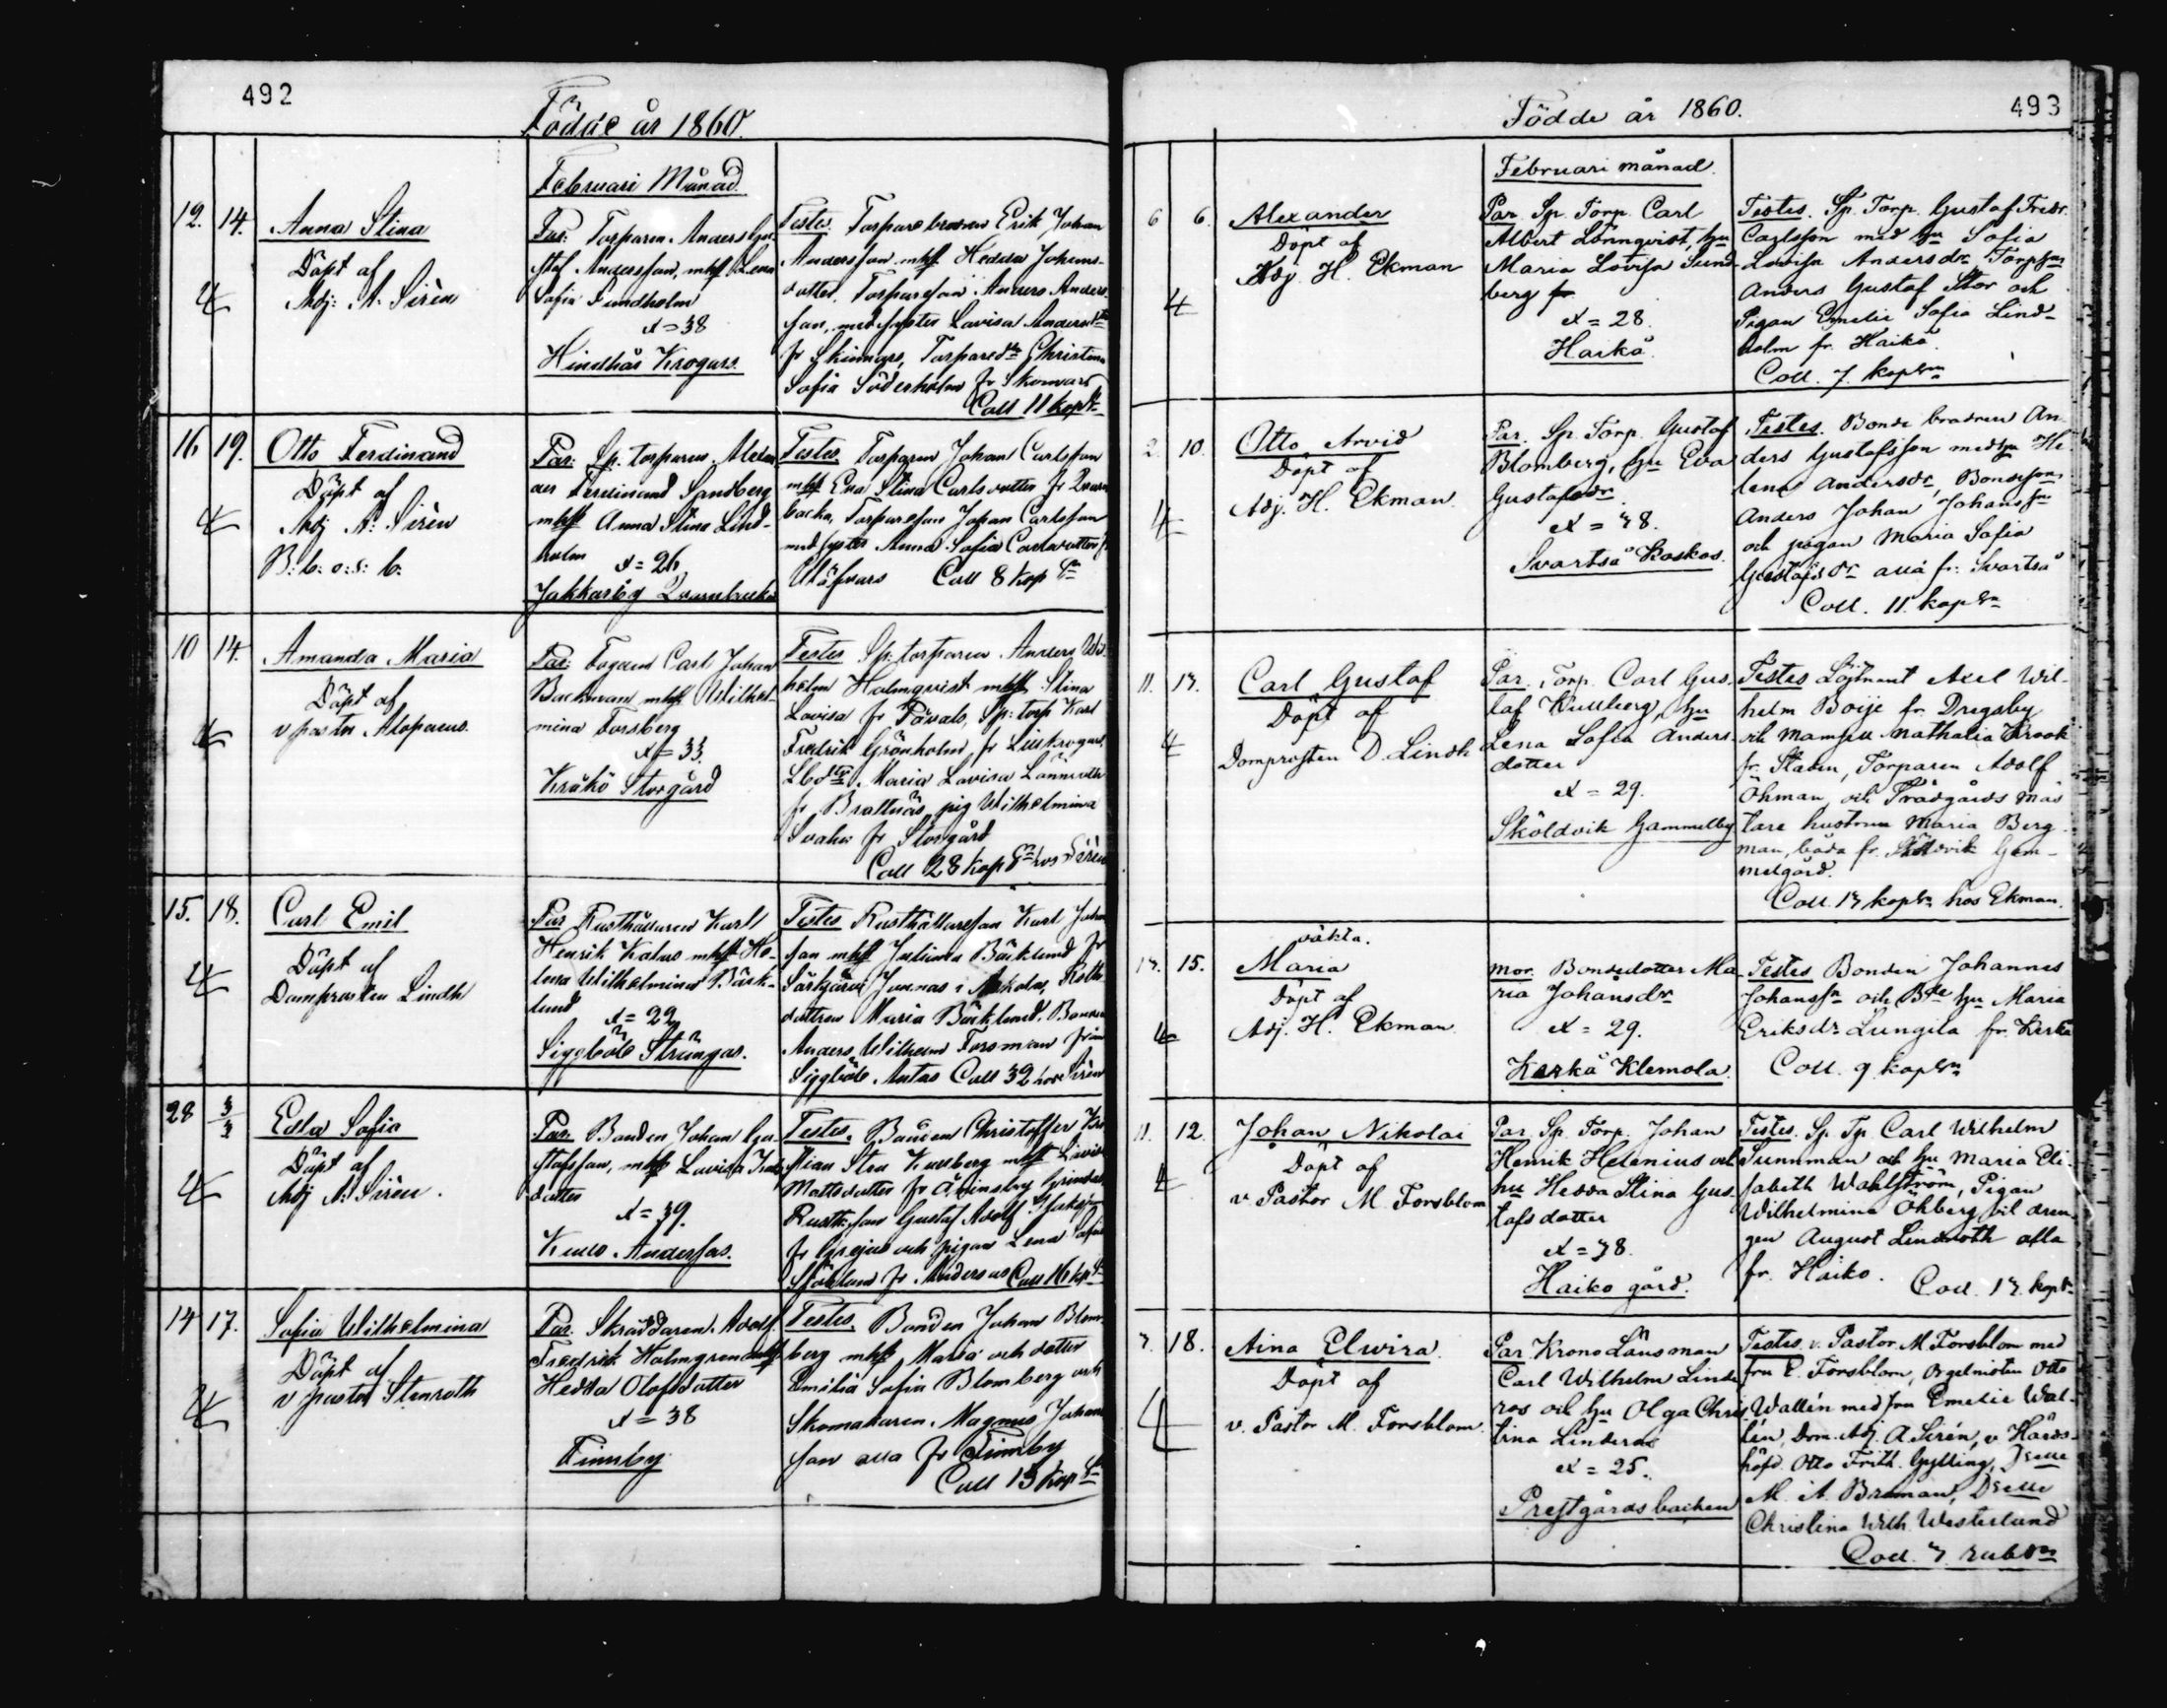 492
Födde år 1860.
Februari Månad
12. 14.
Anna Stina
Döpt af
Adj: A. Sirèn
Par: Torparen Anders Gu-
staf Andersson, mhst Lena
Sofia Lundholm
x = 38
Hindhår Krogars.
Testes. Torpare brodren Erik Johan
Andersson mhst Hedda Johans-
dotter, Torpareson Anders Anders-
son, med syster Lovisa Andersdr
fr Skinnars, Torparedr Christina
Sofia Söderholm fr
Coll 11 kop Sr
16 19.
Otto Ferdinand
Döpt af
Adj A: Sirèn
B: b: o: s: b.
Par: Sp. torparen Alexan
der Ferdinand Sandberg
mhst Anna Stina Lind-
holm x = 26
Jakkarby Qvarnbacka
Testes Torparen Johan Carlsson
mhst Eva Stina Carlsdotter fr Qvarn
backa, Torpareson Johan Carlsson
med syster Anna Sofia Carlsdotter fr
Coll 8 kop Sr
10 14.
Amanda Maria
Döpt af
v pastor Alopaeus.
Par: Fogden Carl Johan
Backman mhst Wilhel-
mina Forsberg
x = 33.
Kråkö Storgård
Testes Sp: torparen Anders Wil-
helm Holmqvist mhst Stina
Lovisa fr Påvals, Sp: torp Karl
Fredrik Grönholm fr
Maria Lovisa Lönnroth
fr Brattnäs, pig Wilhelmina
fr Storgård
Coll 28 kop Sr hos Sirèn
15. 18.
Carl Emil
Döpt af
Domprosten Lindh
Par Rusthållaren Karl
Henrik mhst He-
lena Wilhelmina Bäck-
lund
x = 29
Siggböle Strängas.
Testes Rusthållareson Karl Johan
son mhst Bäcklund fr
Särkjärvi
dottren Maria Bäcklund. Bonden
Anders Wilhelm Forsman från
Siggböle Antas Coll 32 hos Sirèn
28 3/3
Edla Sofia
Döpt af
Adj A: Sirèn.
Par. Bonden Johan Gu-
stafsson, mhst Lovisa
dotter
x = 39.
Kullo Andersas.
Testes. Bonden Christoffer
mhst Lovisa
Mattsdotter fr
Rusth. son Gustaf Adolf
fr och pigan Lena Sofia
fr Andersas Coll 16 kop Sr
14 17.
Sofia Wilhelmina
Döpt af
v pastor Stenroth
Par. Skräddaren Adolf
Fredrik Holmgren mhst
Hedda Olofsdotter
x = 38
Finnby
Testes. Bonden Johan Blom-
berg mhst Maria och dotter
Emilia Sofia Blomberg och
Skomakaren Magnus Johans
son alla fr Finnby
Coll 13 kop Sr
493
Födde år 1860.
Februari månad.
6 6.
Alexander
Döpt af
Adj. H. Ekman
Par. Sp. Torp. Carl
Albert Lönnqvist, hu
Maria Lovisa Sund-
berg fr
x = 28.
Haikå.
Testes. Sp. Torp. Gustaf Fredr.
Carlsson med hu Sofia
Lovisa Andersdr Torpson
Anders Gustaf Stor och
Pigan Emelie Sofia Lind-
holm fr. Haikå.
Coll. 7. kop Sm
2. 10.
Otto Arvid
Döpt af
Adj. H. Ekman.
Par. Sp. Torp. Gustaf
Blomberg, hu Eva
Gustafsdr.
x = 38.
Svartså Koskas.
Testes. Bonde brodren An-
ders Gustafsson med hu He-
lena Andersdr, Bondeson
Anders Johan Johansson
och pigan Maria Sofia
Gustafsdr alla fr. Svartså
Coll. 11. kop Sm
11. 13.
Carl Gustaf
Döpt af
Domprosten D. Lindh
Par. Torp. Carl Gus-
taf Kullberg, hu
Lena Sofia Anders-
dotter
x = 29.
Sköldvik Gammelby
Testes Löjtnant Axel Wil-
helm Boije fr. Dregsby
och Mamsell Nathalia Krook
fr. Staden, Torparen Adolf
Öhman, och Trädgårds mäs
tare hustrun Maria Berg-
man, båda fr. Sköldvik Gam-
melgård.
Coll. 13 kop Sm hos Ekman.
13. 15.
oäkta.
Maria
Döpt af
Adj. H. Ekman
Mor. Bondedotter Ma-
ria Johansdr
x = 29.
Kerkå Klemola.
Testes Bonden Johannes
Johansson och Bde hu Maria
Eriksdr Lungila fr. Kerkå
Coll. 9 kop Sm
11. 12.
Johan Nikolai
Döpt af
v. Pastor M. Forsblom
Par. Sp. Torp. Johan
Henrik Helenius och
hu Hedda Stina Gus-
tafsdotter
x = 38.
Haiko gård.
Testes. Sp. Tp. Carl Wilhelm
Sunnman och hu Maria Eli-
sabeth Wahlström, Pigan
Wilhelmina Öhberg och dren-
gen August Lindroth alla
fr. Haiko.
Coll. 13. kop Sm
7. 18.
Aina Elwira.
Döpt af
v. Pastor M. Forsblom.
Par. Krono Länsman
Carl Wilhelm Linde
ros och hu Olga Chris
tina Linderos
x = 25.
Prestgårdsbacken
Testes v. Pastor M Forsblom med
fru E. Forsblom, Orgelnisten Otto
Wallèn med fru Emelie Wal-
lèn, Dom. Adj. A. Sirén, v. Härds-
höfd. Otto Frith. Gylling, Dselle
M. A. Broman, Dselle
Christina Wilh. Westerlund
Coll. 3. rub Sm